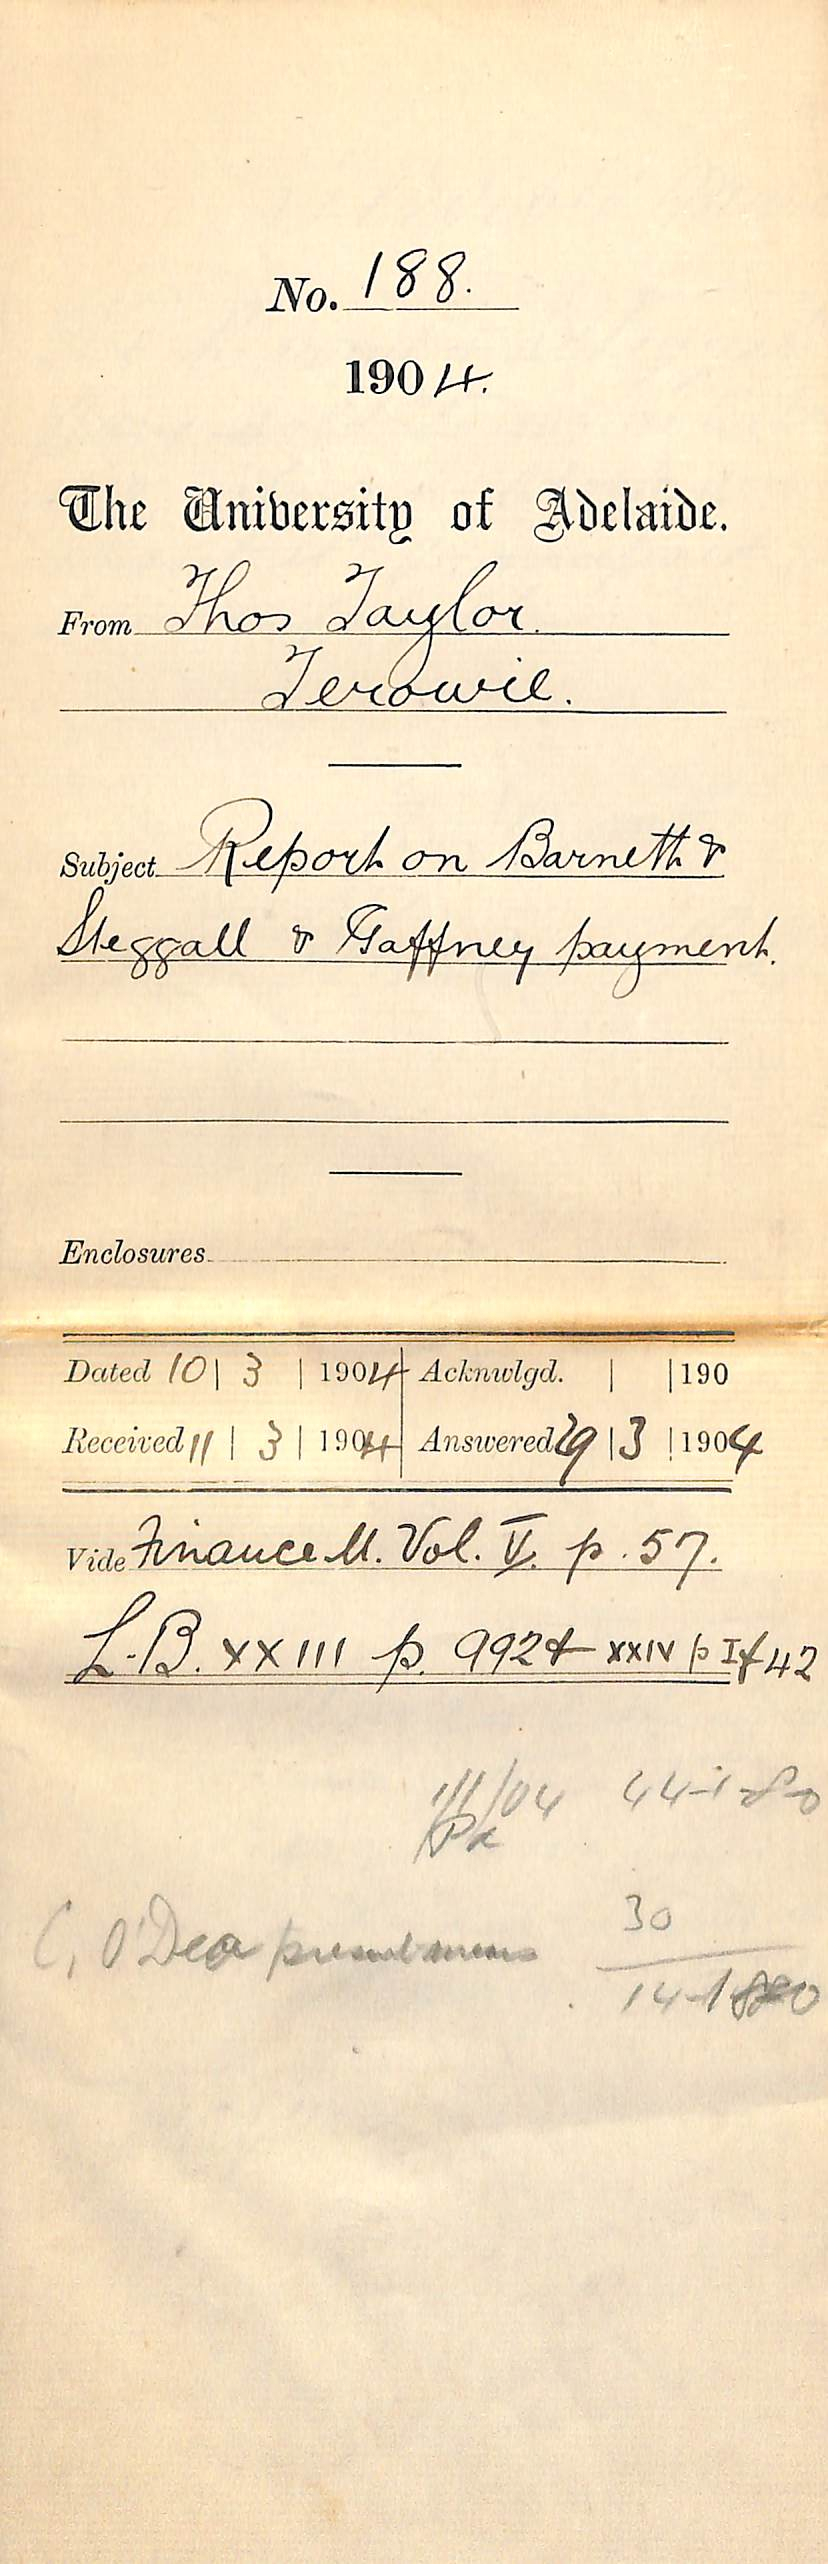 No. 188.
1904.
The University of Adelaide.
From Thos Taylor.
Terowie.
Subject Report on Barnett &
Steggall & Gaffney payment.
Enclosures
Dated 10 | 3 | 1904 Acknwlgd. | | 190
Received 11 | 3 | 1904 Answered 29 | 3 | 1904
Vide Finance M. Vol. V. p. 57.
L.B. XXIII p. 992 & XXIV p I & 42
1/1/04
C, O'Dea
30